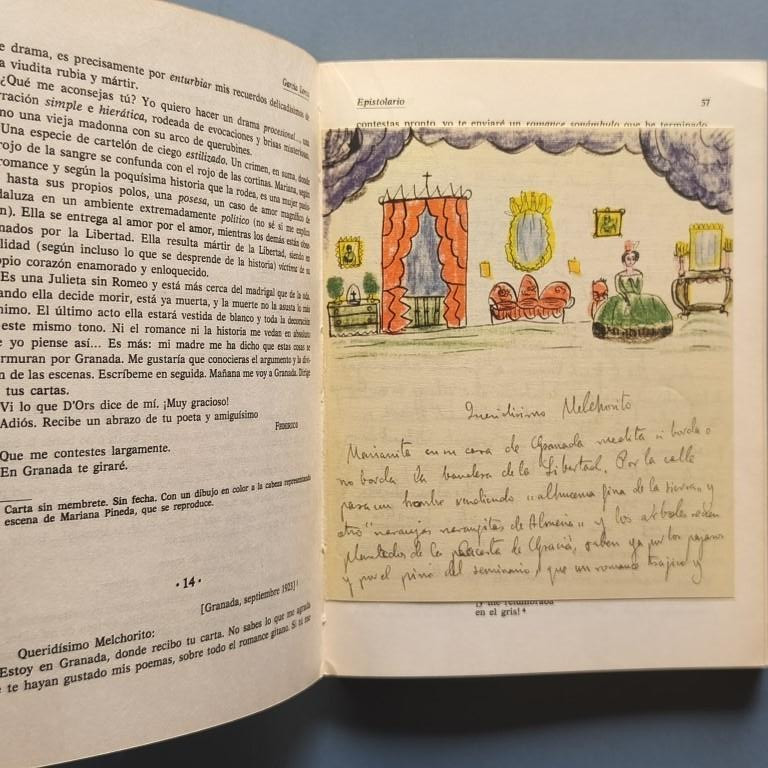 García Lorca
e drama, es precisamente por enturbiar mis recuerdos delicadísimos de
a viudita rubia y mártir.
¿Qué me aconsejas tú? Yo quiero hacer un drama procesional...
ración simple e hierática, rodeada de evocaciones y brisas misteriosas,
no una vieja madonna con su arco de querubines.
Una especie de cartelón de ciego estilizado. Un crimen, en suma, donde
rojo de la sangre se confunda con el rojo de las cortinas. Mariana, según
romance y según la poquísima historia que la rodea, es una mujer
hasta sus propios polos, una posesa, un caso de amor magnífico de
daluza en un ambiente extremadamente político (no sé si me explico
n). Ella se entrega al amor por el amor, mientras los demás están
nados por la Libertad. Ella resulta mártir de la Libertad, siendo en
lidad (según incluso lo que se desprende de la historia) víctima de su
opio corazón enamorado y enloquecido.
Es una Julieta sin Romeo y está más cerca del madrigal que de la oda.
ando ella decide morir, está ya muerta, y la muerte no la asusta lo más
nimo. El último acto ella estará vestida de blanco y toda la decoración
este mismo tono. Ni el romance ni la historia me vedan en absoluto
e yo piense así... Es más: mi madre me ha dicho que estas cosas se
rmuran por Granada. Me gustaría que conocieras el argumento y la
n de las escenas. Escríbeme en seguida. Mañana me voy a Granada. Dirige
tus cartas.
Vi lo que D'Ors dice de mí. ¡Muy gracioso!
Adiós. Recibe un abrazo de tu poeta y amiguísimo
FEDERICO
Que me contestes largamente.
En Granada te giraré.
Carta sin membrete. Sin fecha. Con un dibujo en color a la cabeza representando
escena de Mariana Pineda, que se reproduce.
· 14 ·
[Granada, septiembre 1923] 1
Queridísimo Melchorito:
Estoy en Granada, donde recibo tu carta. No sabes lo que me agrada
e te hayan gustado mis poemas, sobre todo el romance gitano. Si tú me
Epistolario 57
contestas pronto, yo te enviaré un romance sonámbulo que he terminado
Queridísimo Melchorito
Marianita en su casa de Granada medita si borda o
no borda la bandera de la Libertad. Por la calle
pasa un hombre vendiendo "alhucema fina de la sierra" y
otro "naranjas naranjitas de Almería" y los árboles recien
plantados de la placeta de Gracia, saben ya por los pajaros
y por el pino del seminario, que un romance trajico y
en el gris! 4